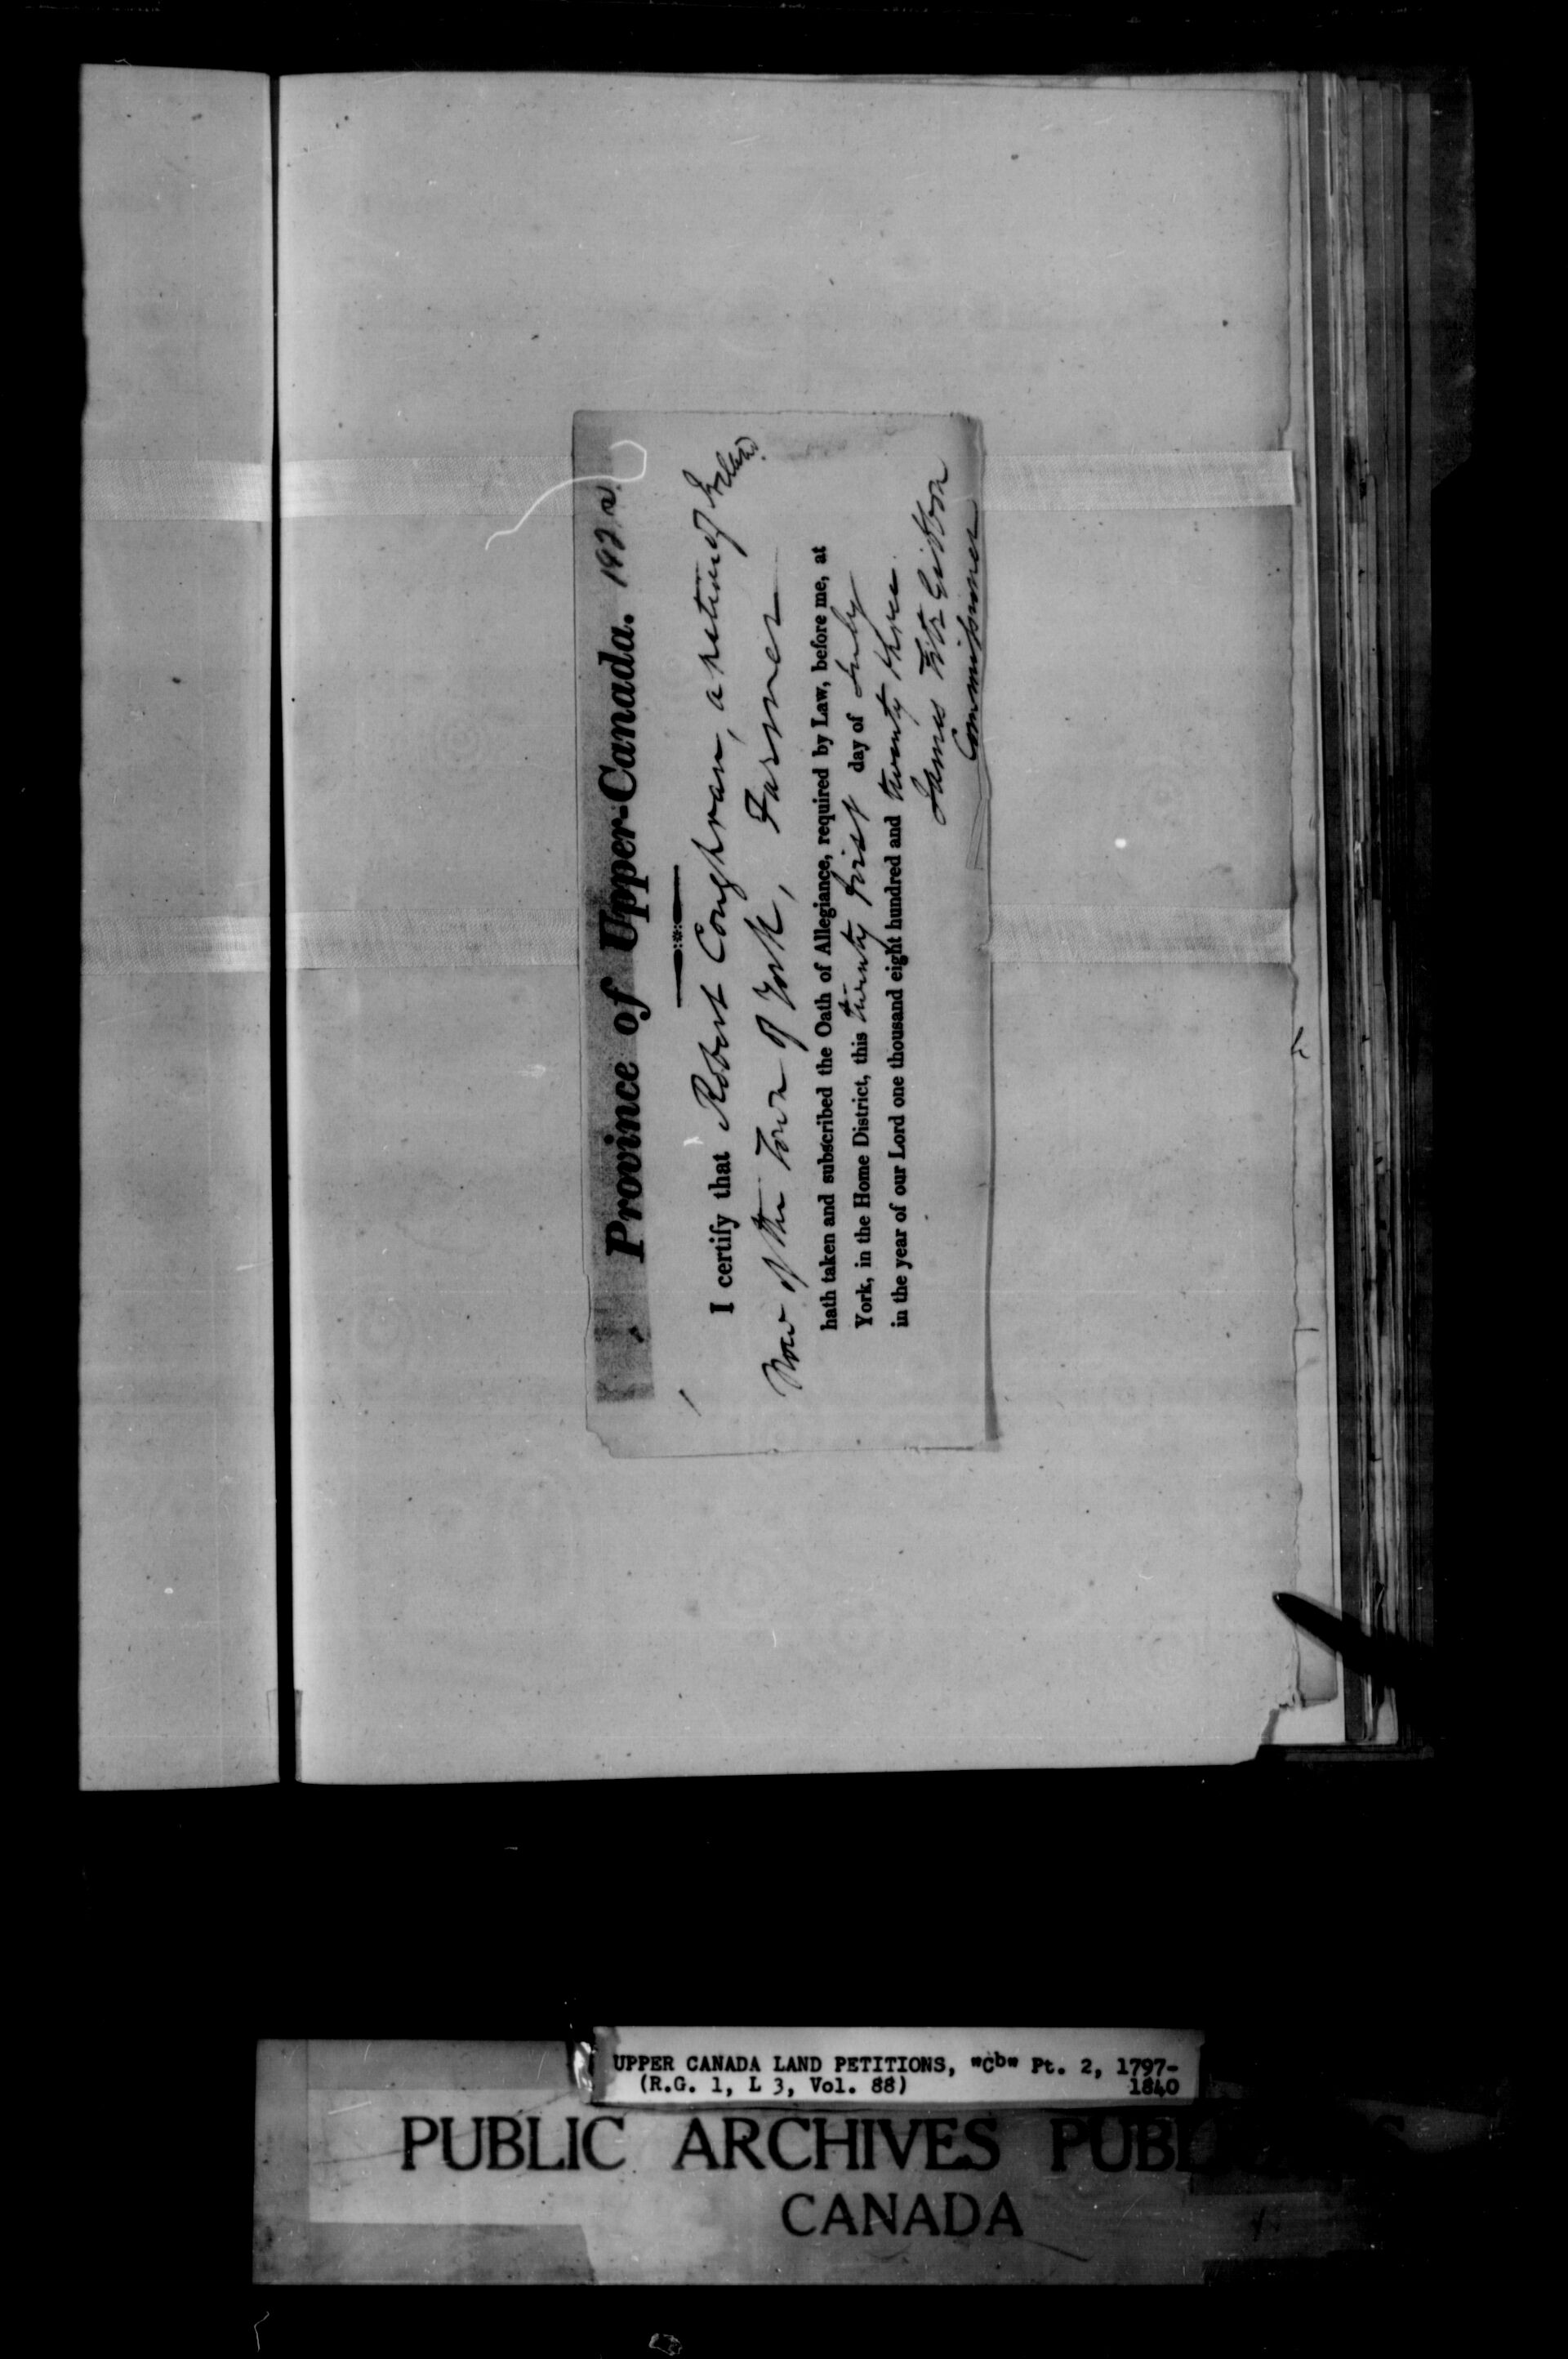 Province of Upper-Canada. 182 a.
I certify that Robert Coughran, a native of Ireland
Now of the Town of York, Farmer
hath taken and subscribed the Oath of Allegiance, required by Law, before me, at
York, in the Home District, this twenty first day of July
in the year of our Lord one thousand eight hundred and twenty three.
James FitzGibbon
Commissioner
UPPER CANADA LAND PETITIONS, "Cb" Pt. 2, 1797-
(R.G. 1, L 3, Vol. 88) 1840
PUBLIC ARCHIVES PUBL
CANADA